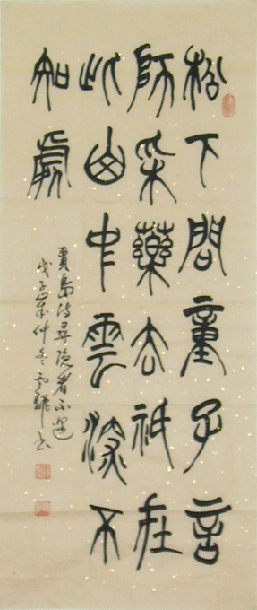 松下問童子言
師采藥去祇在
此山中雲深不
知處
賈島詩尋隱者不遇
戊子年仲冬書